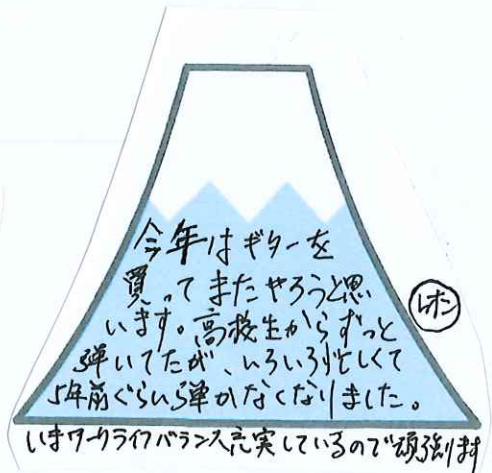 今年はギターを
買ってまたやろうと思
います。高校生からずっと
弾いてたが、いろいろ忙しくて
5年前ぐらい弾かなくなりました。
いまワークライフバランス充実しているので頑張ります
レオン